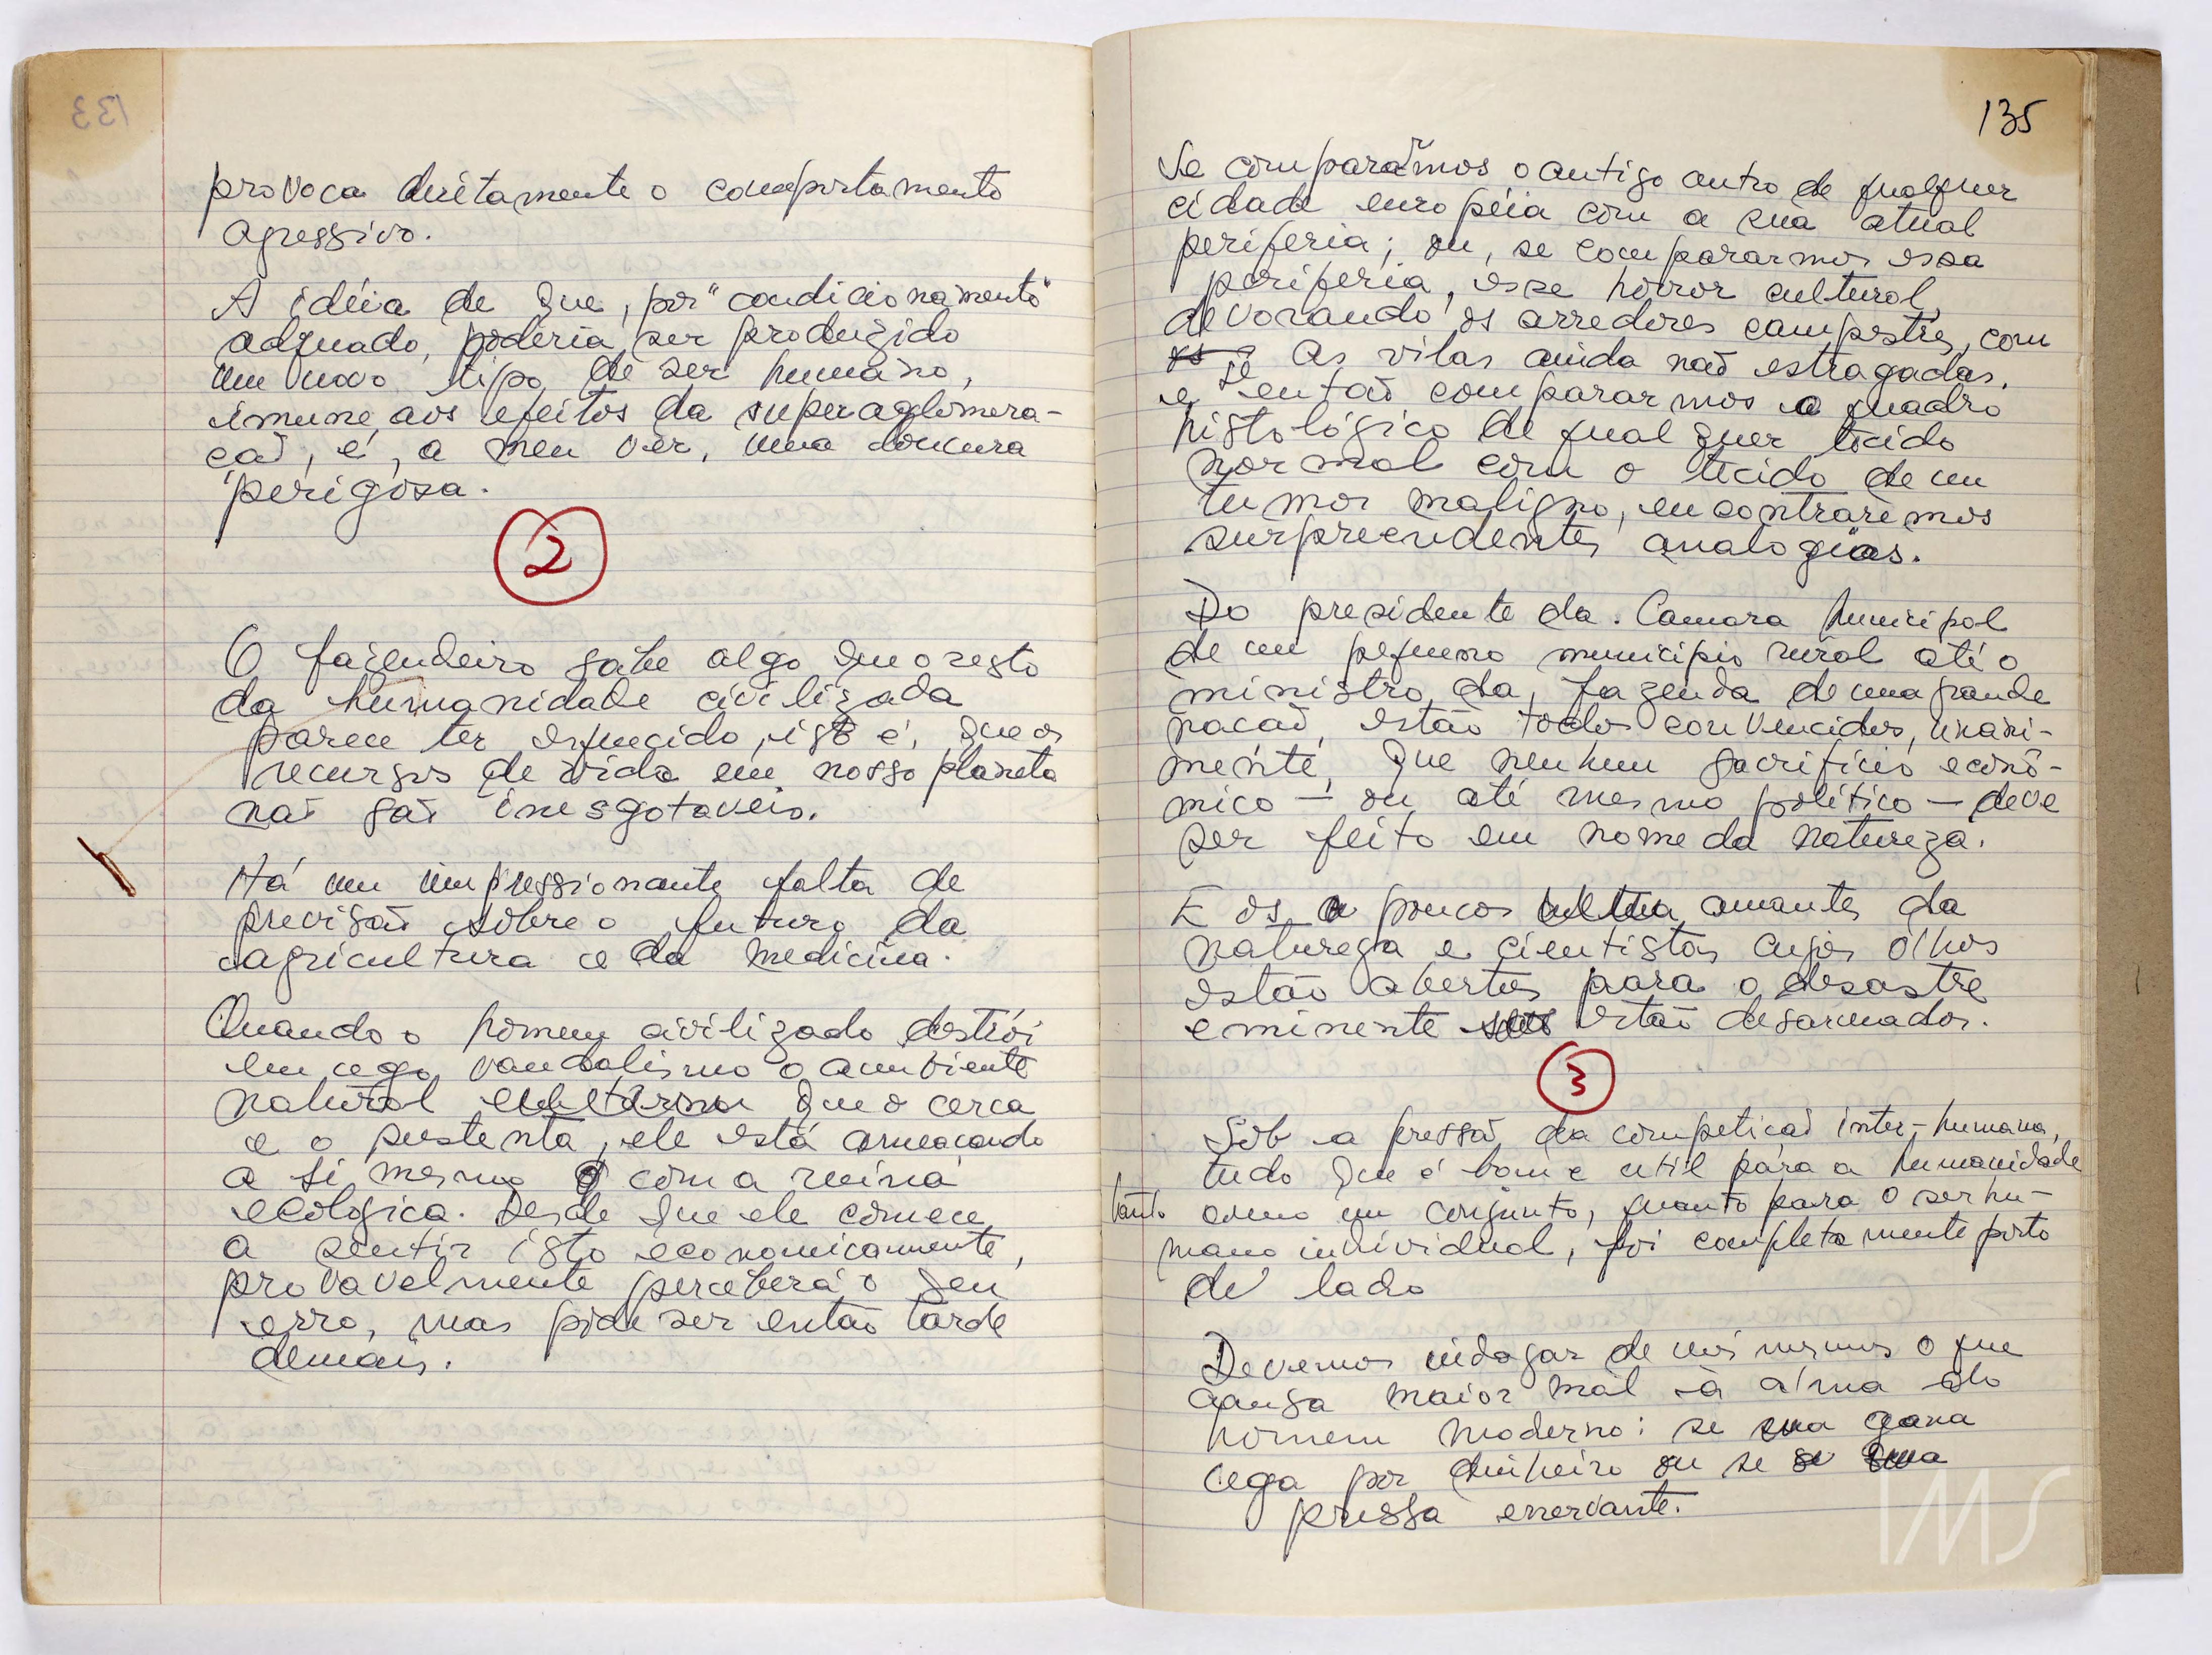 provoca diretamente o comportamento
agressivo.
A idéia de que, por "condicionamento"
adquado, poderia ser produzido
um novo tipo de ser humano,
imune aos efeitos da superaglomera-
ção, é, a meu ver, uma loucura
perigosa.
2
O fazendeiro sabe algo que o resto
da humanidade civilizada
parece ter esquecido, isto é, que os
recursos de vida em nosso planeta
não são inesgotaveis.
Há um impressionante falta de
previsão sobre o futuro da
agricultura e da medicina.
Quando o homem civilizado destrói
em cego vandalismo o ambiente
natural que o cerca
e o sustenta, ele está ameaçando
a si mesmo com a ruína
ecológica. Desde que ele comece
a sentir isto economicamente,
provavelmente perceberá o seu
erro, mas pode ser então tarde
demais.
135
Se compararmos o antigo centro de qualquer
cidade européia com a sua atual
periferia; ou, se compararmos essa
periferia, esse horror cultural,
devorando os arredores campestres, com
as vilas ainda não estragadas.
e se então compararmos o quadro
histológico de qualquer tecido
normal com o tecido de um
tumor maligno, encontraremos
surpreendentes analogias.
Do presidente da Camara Municipal
de um pequeno município rural até o
ministro da fazenda de uma grande
nação, estão todos convencidos, unani-
mente, que nenhum sacrifício econô-
mico — ou até mesmo político — deve
ser feito em nome da natureza.
E os poucos amantes da
natureza e cientistas cujos olhos
estão abertos para o desastre
eminente estão desarmados.
3
Sob a pressão da competição inter-humana,
tudo que é bom e util para a humanidade
tanto como um conjunto, quanto para o ser hu-
mano individual, foi completamente posto
de lado
Devemos indagar de nós mesmos o que
causa maior mal à alma do
homem moderno: se sua gana
cega por dinheiro ou se sua
pressa enervante.
IMS